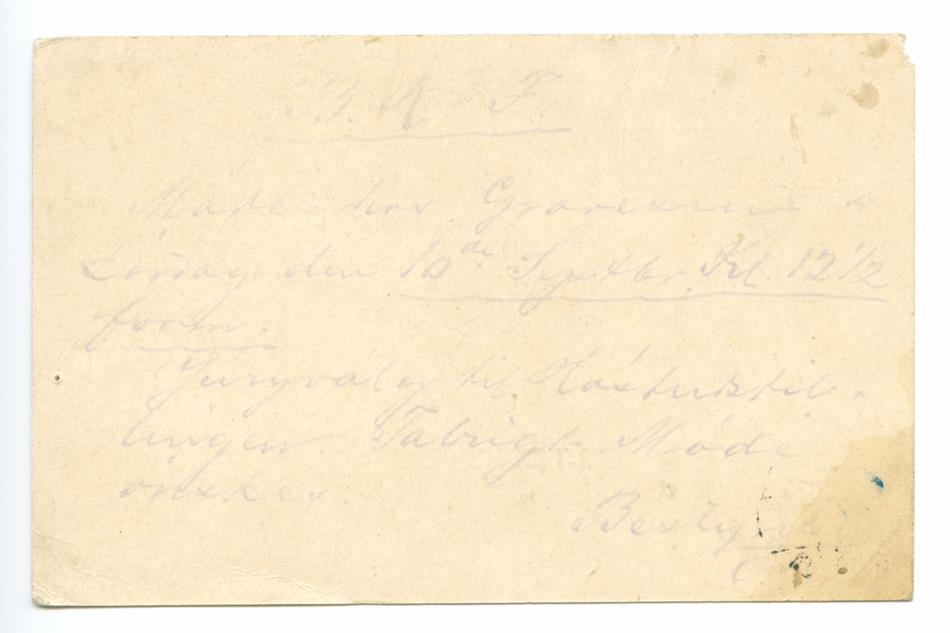 B. K F.
Møde hos Gravesen
Lørdag den 10de Septbr. Kl. 12 1/2
form.
Juryvalg til Høstudstil-
lingen Talrigt Møde
ønskes.